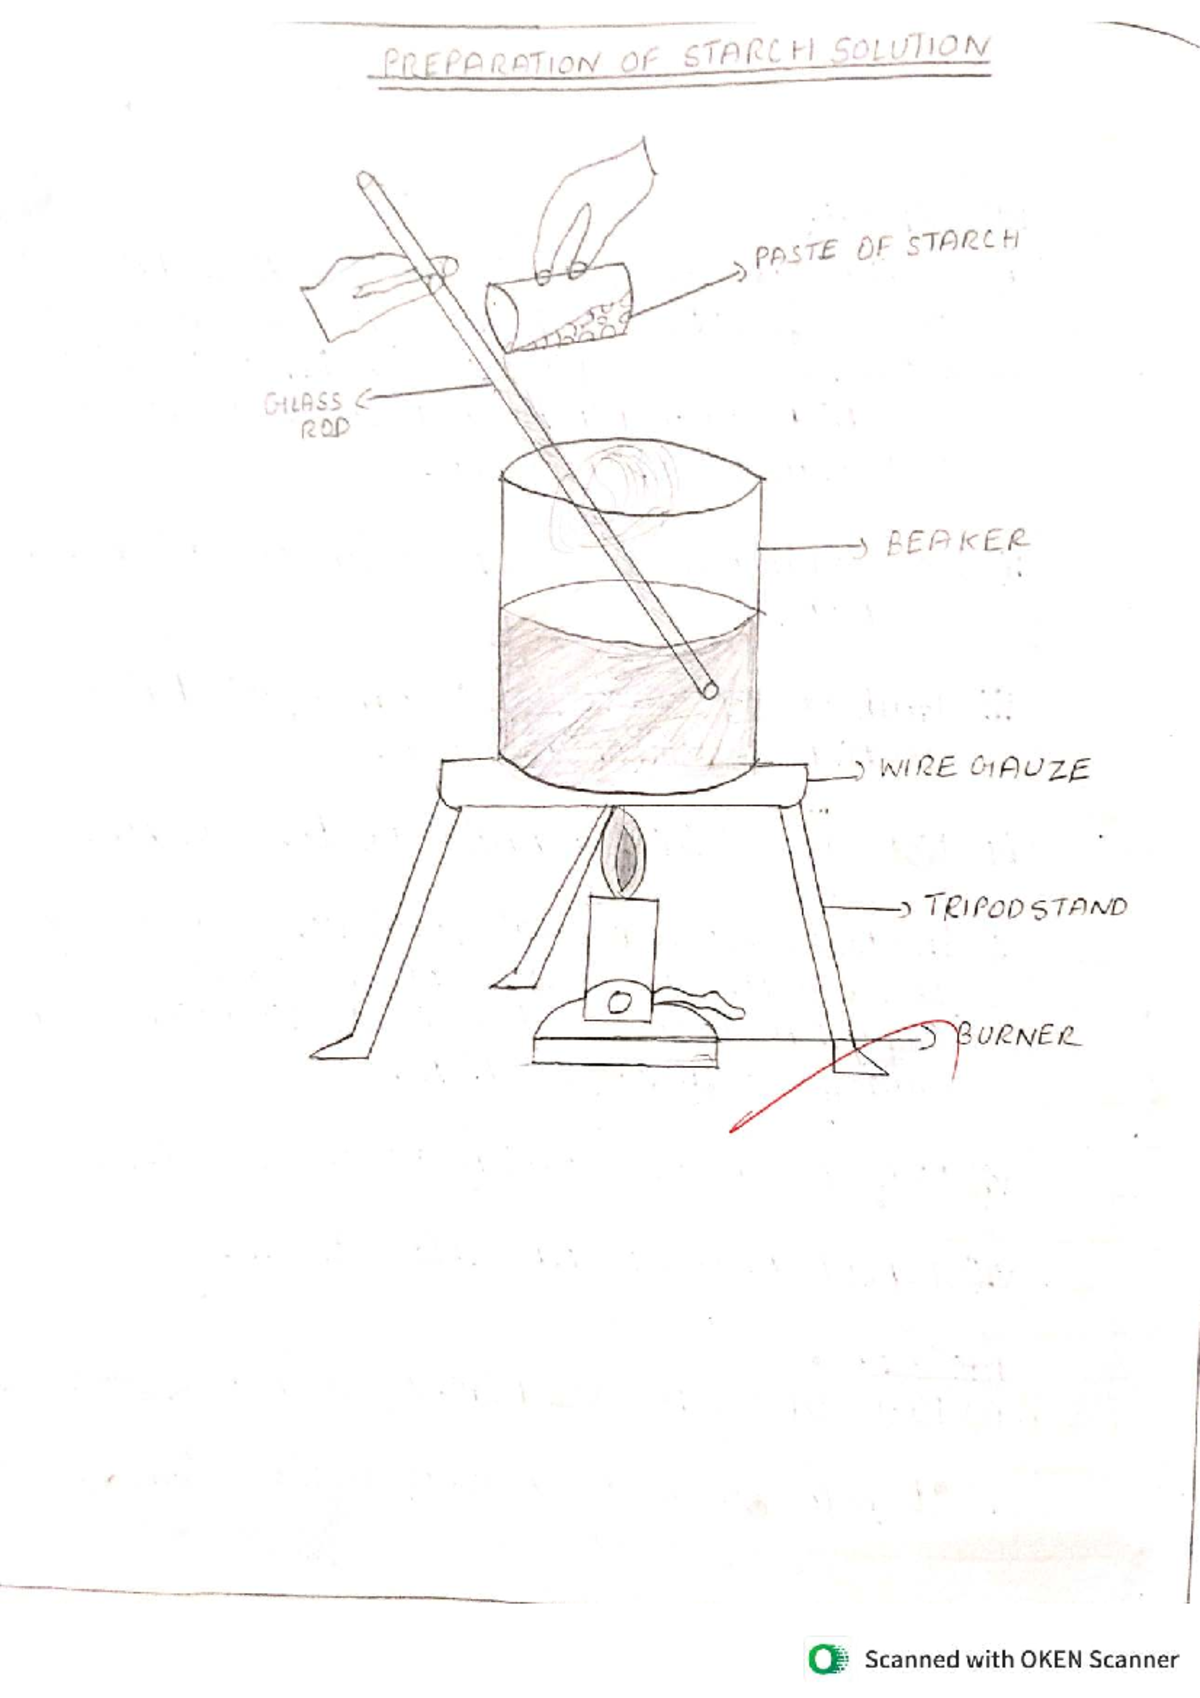 PREPARATION OF STARCH SOLUTION
PASTE OF STARCH
GLASS
ROD
BEAKER
WIRE GAUZE
TRIPOD STAND
BURNER
Scanned with OKEN Scanner